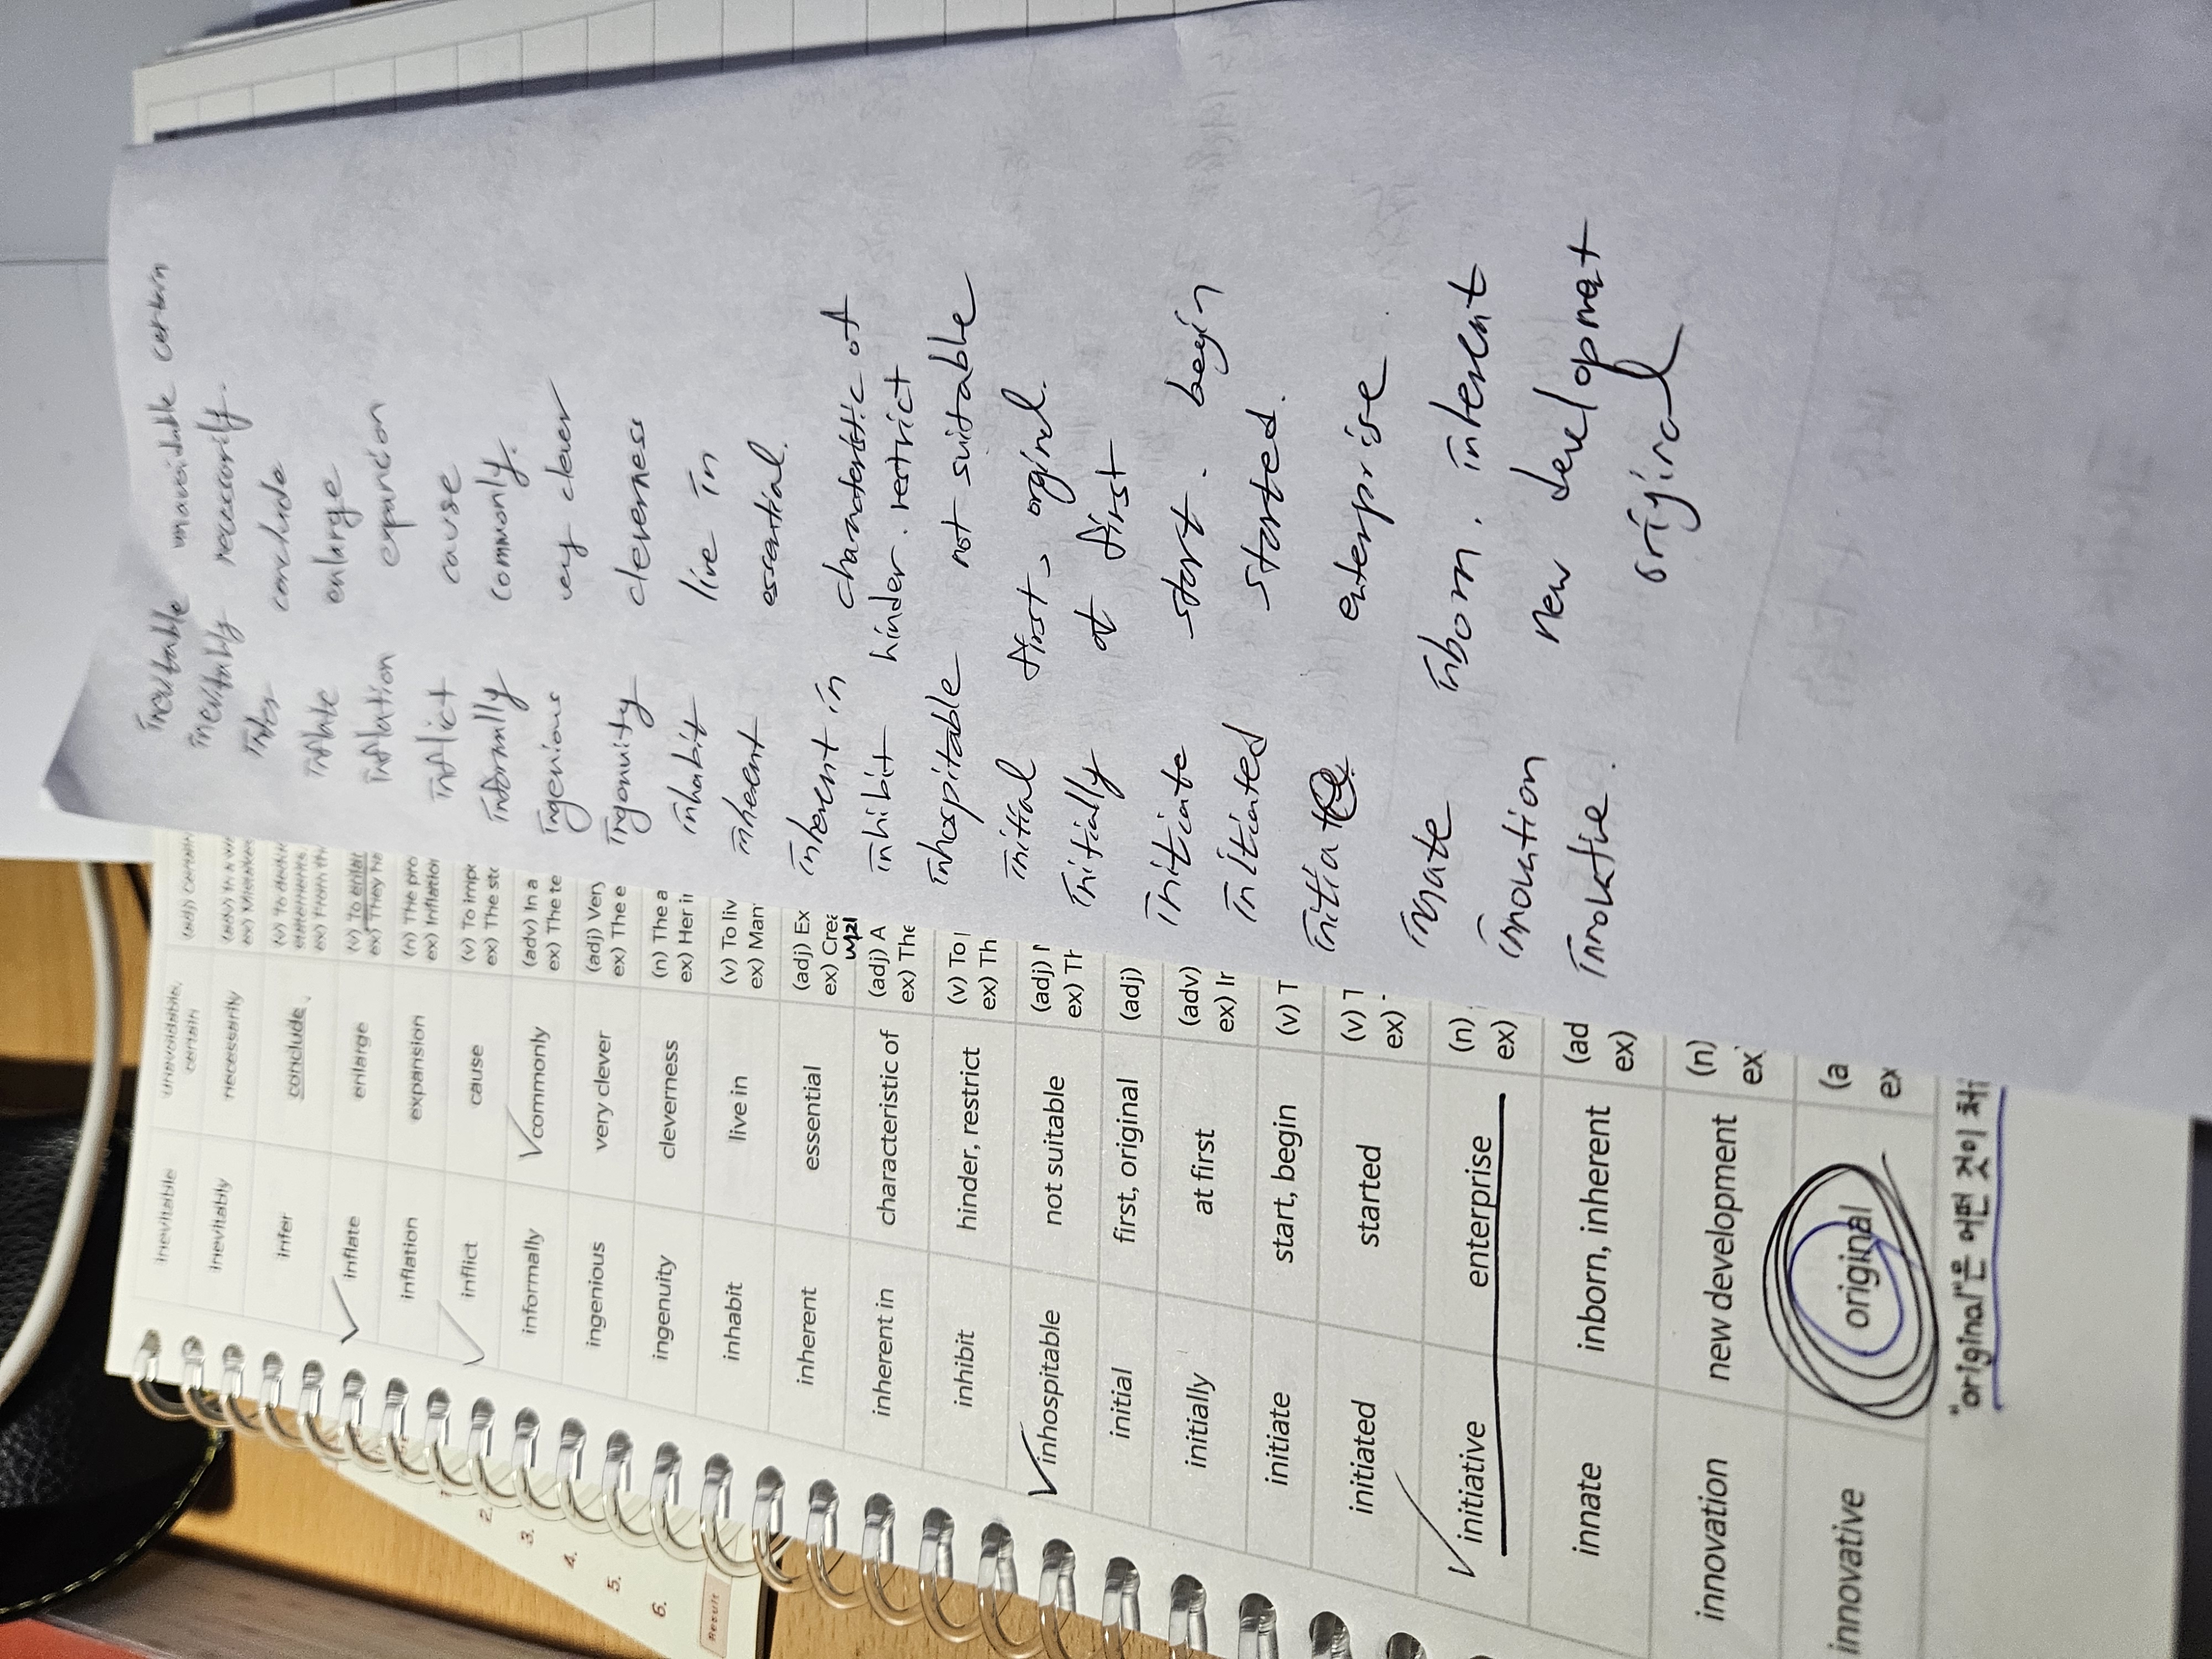 inevitable unavoidable, certain (adj) Certain
inevitably necessarily (adv) In a
ex) Mistakes
infer conclude (v) To
ex) From th
inflate enlarge (v) To enlar
ex) They ha
inflation expansion (n) The pro
ex) Inflation
inflict cause (v) To impo
ex) The sto
informally commonly (adv) In a
ex) The te
ingenious very clever (adj) Very
ex) The e
ingenuity cleverness (n) The a
ex) Her in
inhabit live in (v) To liv
ex) Man
inherent essential (adj) Ex
ex) Crea
inherent in characteristic of (adj) A
ex) The
inhibit hinder, restrict (v) To
ex) Th
inhospitable not suitable (adj)
ex) Th
initial first, original (adj)
initially at first (adv)
ex) Ir
initiate start, begin (v) T
initiated started (v) T
ex)
initiative enterprise (n)
ex)
innate inborn, inherent (ad
ex)
innovation new development (n)
ex
innovative original (a
ex
"original"은 어떤 것이 처
inevitable unavoidable certain
inevitably necessarily.
infer conclude
inflate enlarge
inflation expansion
inflict cause
informally commonly.
ingenious very clever
ingenuity cleverness
inhabit live in
inherent essential.
inherent in characteristic of
inhibit hinder. restrict
inhospitable not suitable
initial first, orginal.
initially at first
initiate start. begin
initiated started.
initiat enterprise.
innate inborn. inherent
innovation new development
innovative. original
2.
3.
4.
5.
6.
Result